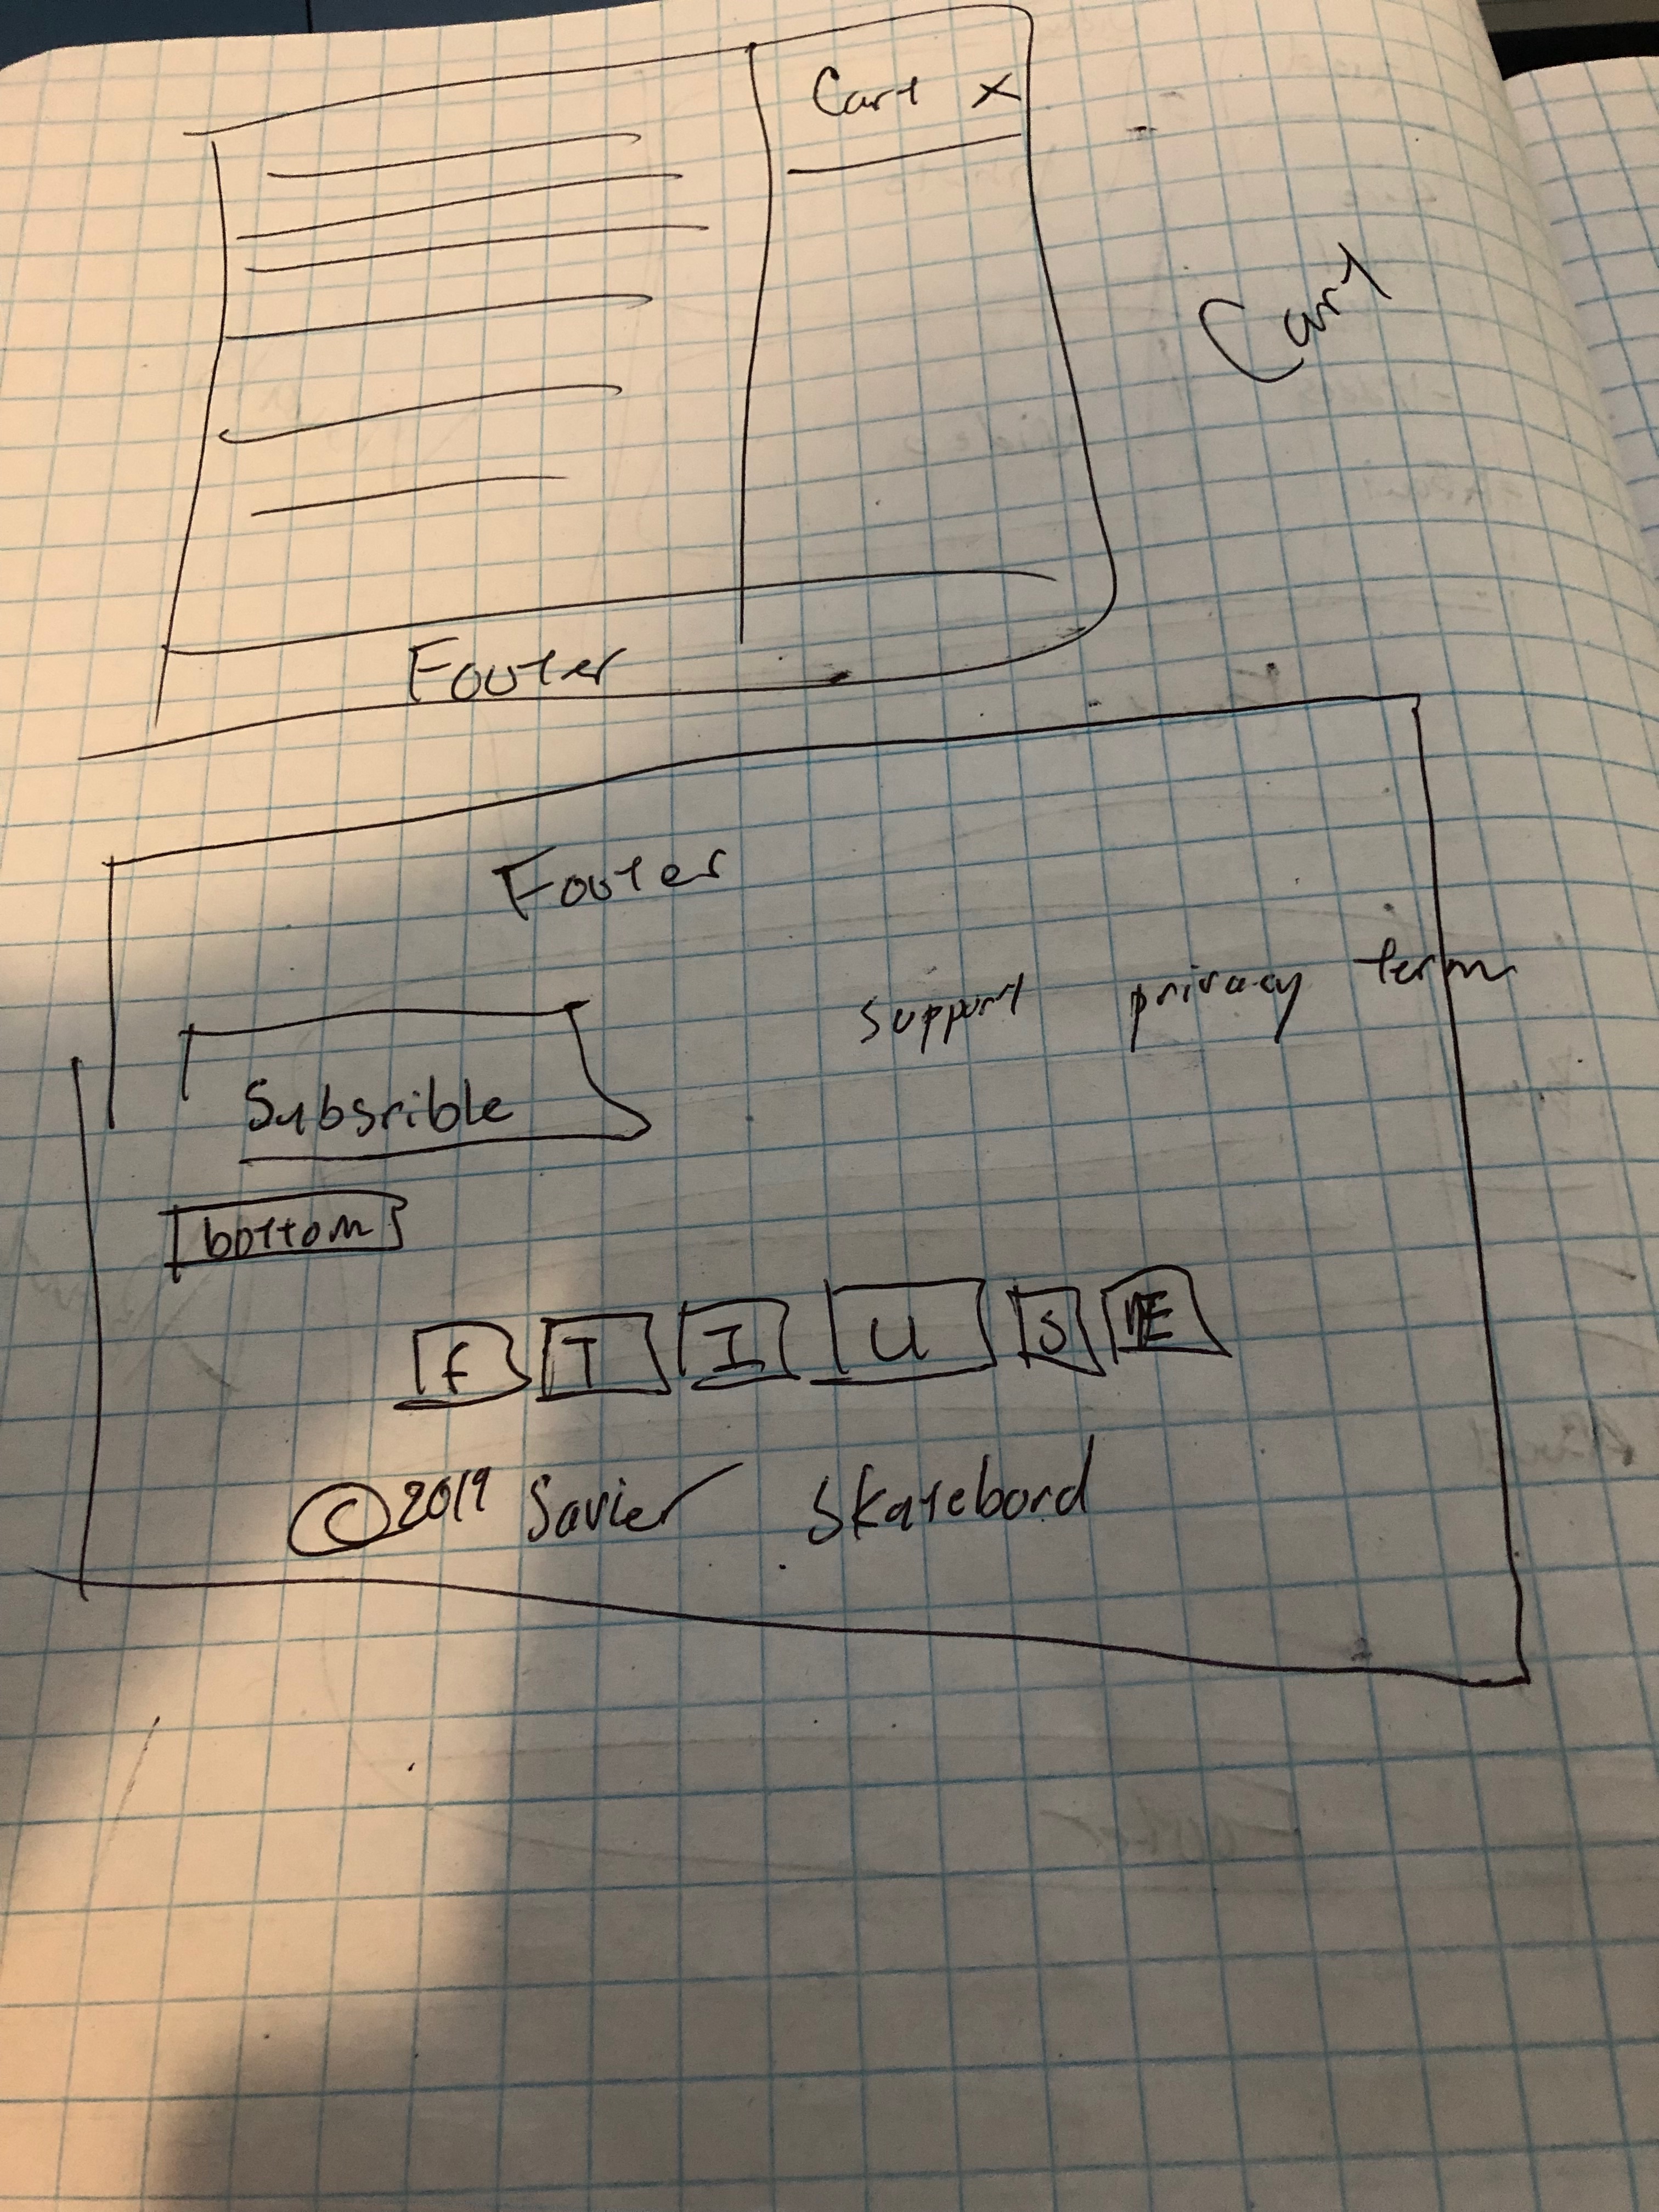 Cart X
Cart
Footer
Footer
support privacy term
Subsrible
bottom
f T I U S
© 2019 Savier Skatebord